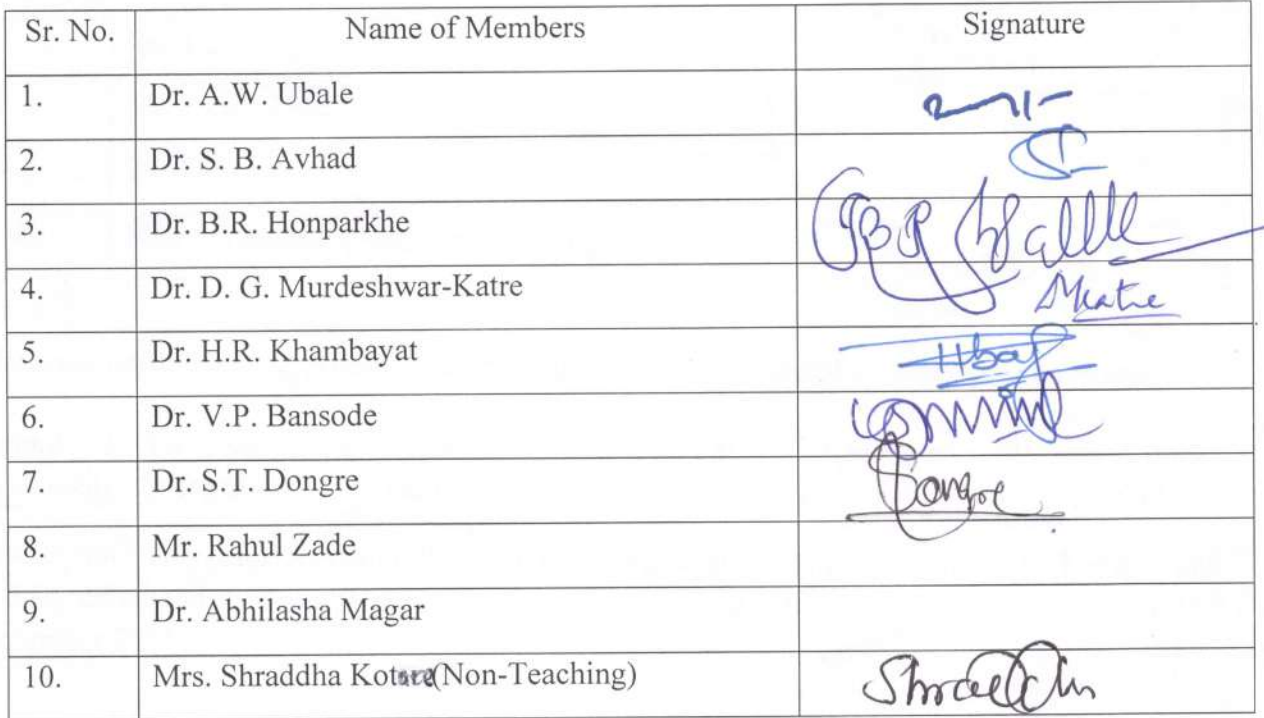 Sr. No. Name of Members Signature
1. Dr. A.W. Ubale
2. Dr. S. B. Avhad
3. Dr. B.R. Honparkhe
4. Dr. D. G. Murdeshwar-Katre DKatre
5. Dr. H.R. Khambayat
6. Dr. V.P. Bansode
7. Dr. S.T. Dongre Dongre
8. Mr. Rahul Zade
9. Dr. Abhilasha Magar
10. Mrs. Shraddha (Non-Teaching)